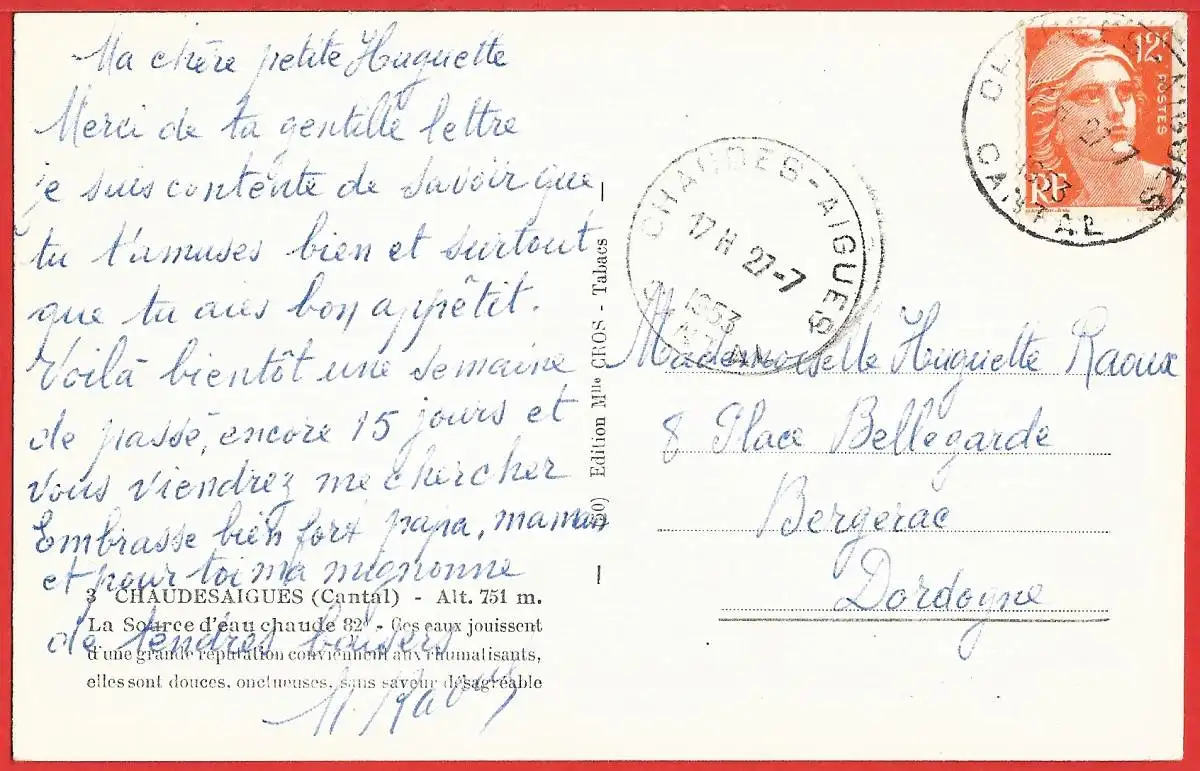 Ma chère petite Huguette
Merci de ta gentille lettre
je suis contente de savoir que
tu t'amuses bien et surtout
que tu aies bon appêtit.
Voilà bientôt une semaine
de passé, encore 15 jours et
vous viendrez me chercher
Embrasse bien fort papa, maman
et pour toi ma mignonne
de tendres baisers
3 CHAUDESAIGUES (Cantal) - Alt. 751 m.
La Source d'eau chaude 82° - Ces eaux jouissent
d'une grande réputation conviennent aux rhumatisants,
elles sont douces, onctueuses, sans saveur désagréable
Edition Mlle CROS - Tabacs
CHAUDES-AIGUES
17 H 27-7
1953
CANTAL
12F
POSTES
RF
CANTAL
Mademoiselle Huguette Raoux
8 Place Bellegarde
Bergerac
Dordogne